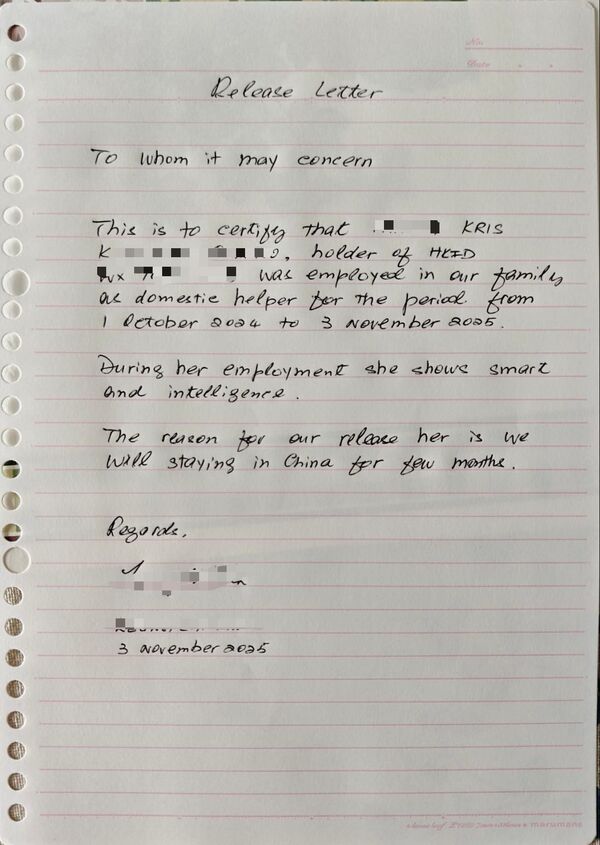 No.
Date
Release Letter
To whom it may concern
This is to certify that KRIS
K holder of HKID
was employed in our family
as domestic helper for the period from
1 October 2024 to 3 November 2025.
During her employment she shows smart
and intelligence.
The reason for our release her is we
will staying in China for few months.
Regards,
3 November 2025
maruman